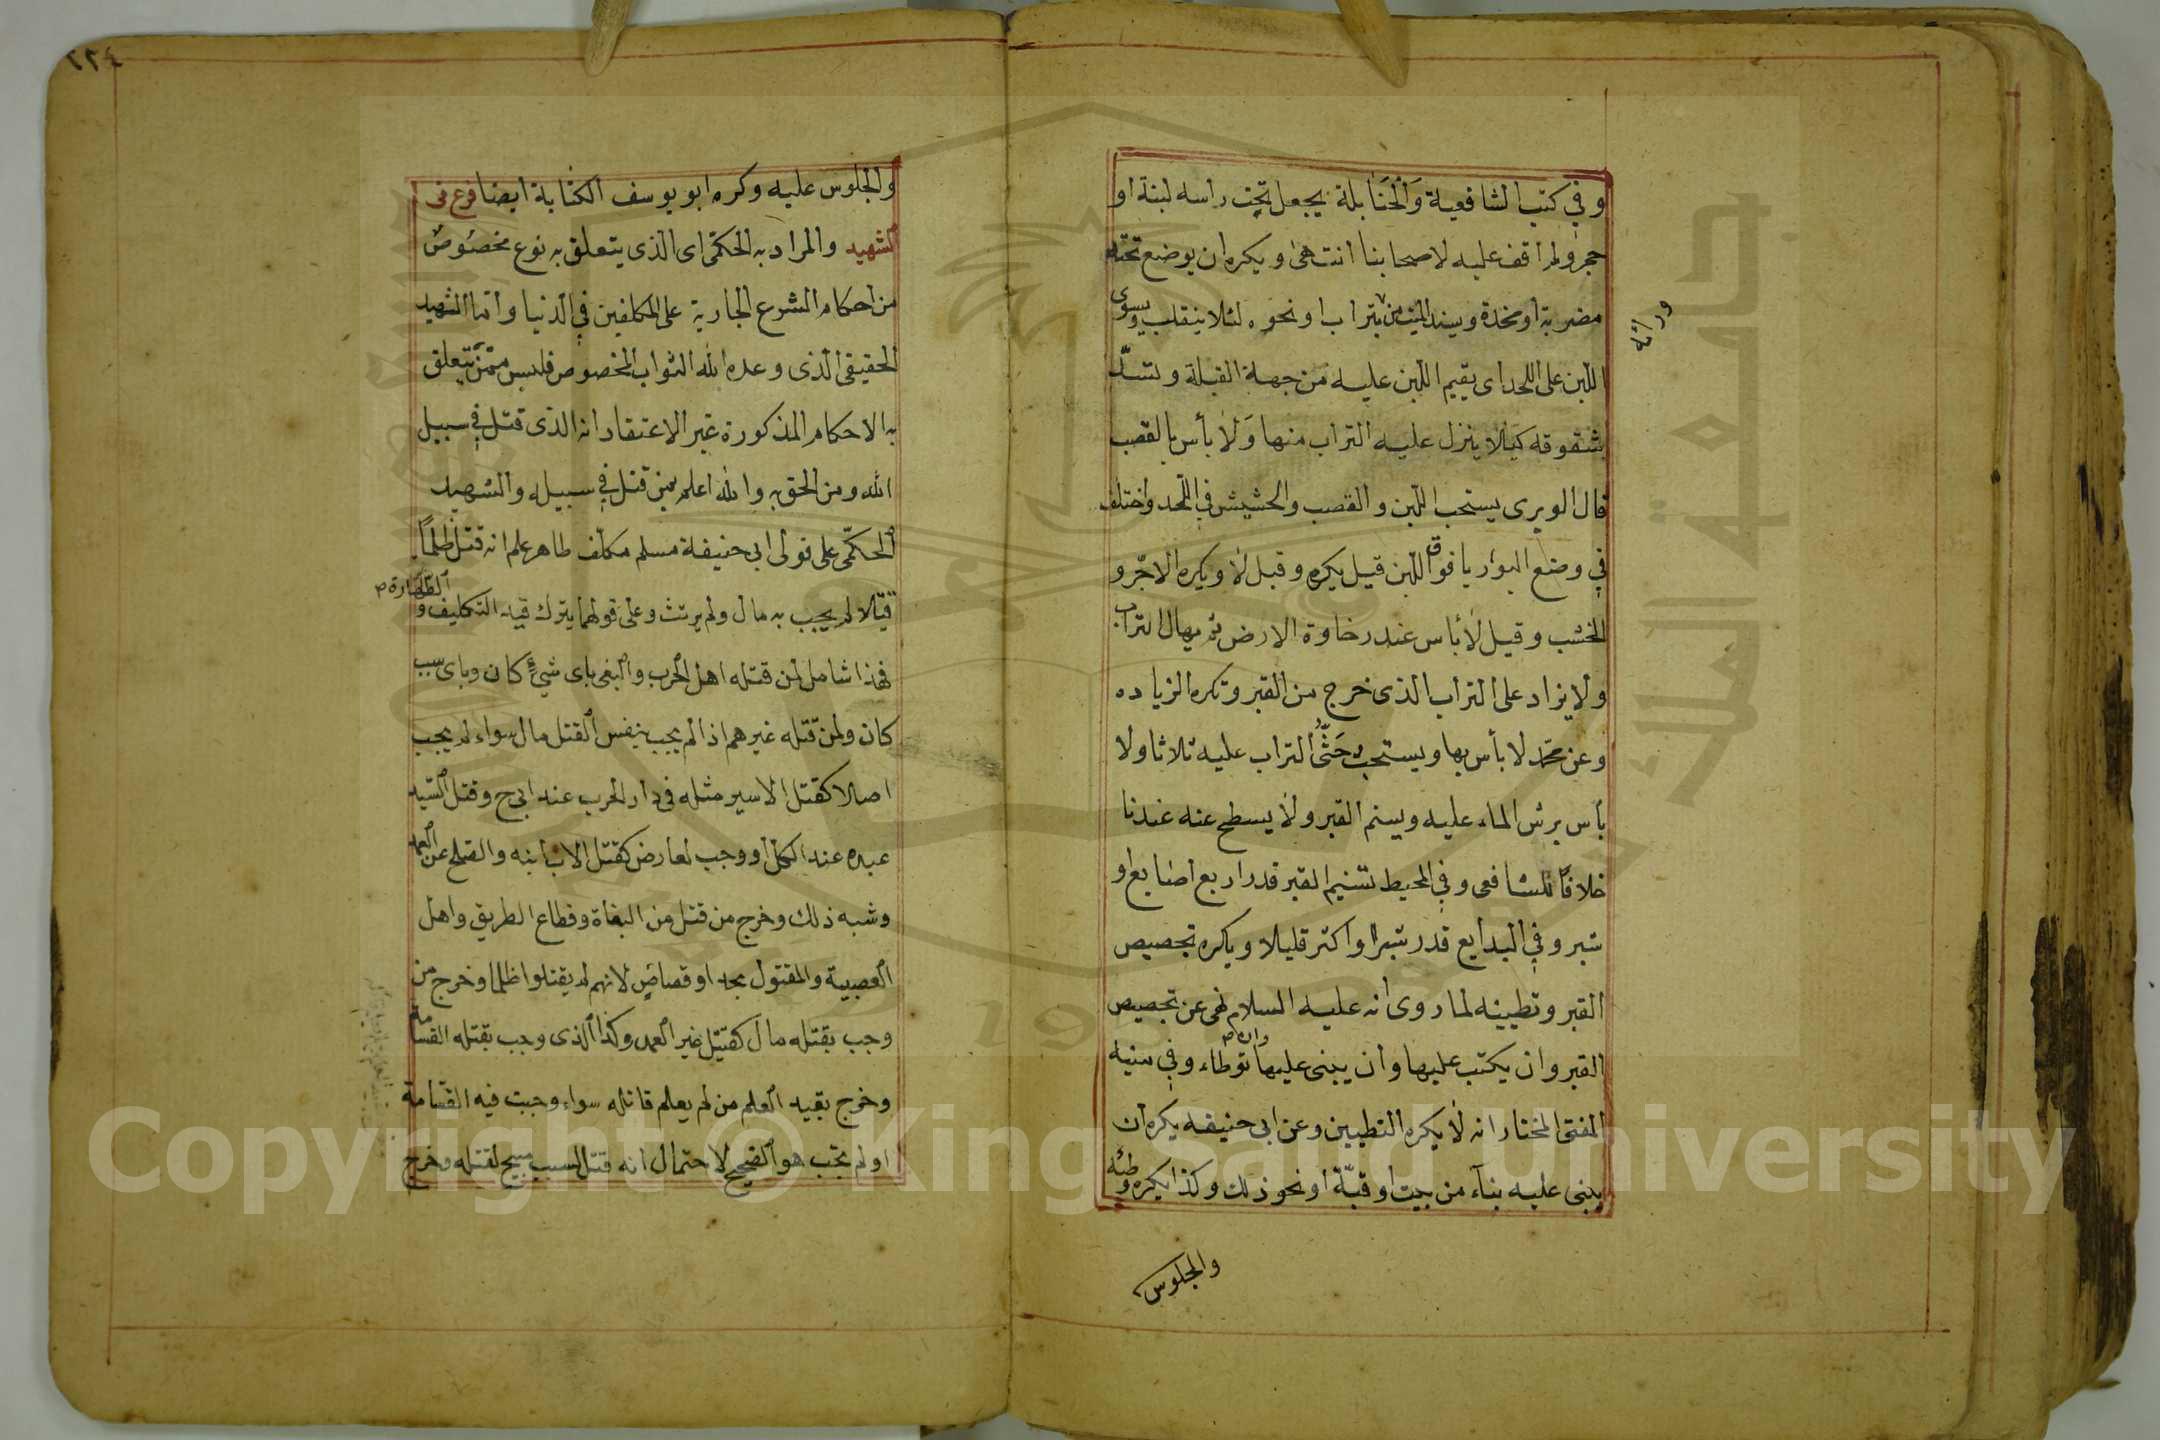 وفي كتب الشافعية والحنابلة يجعل تحت راسه لبنة او
حجر ولم اقف عليه لاصحابنا انتهى ويكره ان يوضع تحته
مضربة او مخدة ويسند الميت من ورائه بتراب او نحوه لئلا ينقلب ويسوى
اللبن على اللحد اى يقيم اللبن عليه من جهة القبلة وتسدّ
شقوقه كيلا ينزل عليه التراب منها ولا بأس بالقصب
قال الوبرى يستحب اللبن والقصب والحشيش في اللحد واختلف
في وضع البوريا فوق اللبن قيل يكره وقيل لا ويكره الاجر و
الخشب وقيل لا بأس عند رخاوة الارض ثم يهال التراب
ولا يزاد على التراب الذى خرج من القبر وتكره الزياده
وعن محمد لا بأس بها ويستحب حثى التراب عليه ثلاثا ولا
بأس برش الماء عليه ويسنم القبر ولا يسطح عنه عندنا
خلافا للشافعى وفي المحيط تسنيم القبر قدر اربع اصابع او
شبر وفي البدايع قدر شبر او اكثر قليلا ويكره تجصيص
القبر وتطيينه لما روى انه عليه السلام نهى عن تجصيص
القبر وان يكتب عليها وان يبنى عليها وان توطاء وفي منية
المفتى المختار انه لا يكره التطيين وعن ابى حنيفه يكره ان
يبنى عليه بناء من بيت او قبّة او نحو ذلك وكذا يكره وطئه
والجلوس
٢٢٤
والجلوس عليه وكره ابو يوسف الكتابة ايضا فرع فى
الشهيد والمراد به الحكمّى اى الذى يتعلق به نوع مخصوص
من احكام الشرع الجارية على المكلفين في الدنيا واما الشهيد
الحقيقى الذى وعده الله الثواب المخصوص فليس ممّن يتعلق
به الاحكام المذكورة غير الاعتقاد انه الذى قتل في سبيل
الله ومن الحق به والله اعلم بمن قتل في سبيله والشهيد
الحكمّى على قول ابى حنيفة مسلم مكلّف طاهر علم انه قتل ظلماً
قتلا لم يجب به مال ولم يرتث وعلى قولهما يترك قيد التكليف و الطهارة ص
فهذا شامل لمن قتله اهل الحرب والبغى باى شئ كان وباى سبب
كان ولمن قتله غيرهم اذا لم يجب بنفس القتل مال سواء لم يجب
اصلا كقتل الاسير مثله فى دار الحرب عند ابى ح وقتل السيد
عبده عند الكل او وجب لعارض كقتل الاب ابنه والصلح عن العمد
وشبه ذلك وخرج من قتل من البغاة وقطاع الطريق واهل
العصبية والمقتول بحد او قصاص لانهم لم يقتلوا ظلما وخرج من
وجب بقتله مال كقتيل غير العمد وكذا الذى وجب بقتله القسامة
وخرج بقيد العلم من لم يعلم قاتله سواء وجبت فيه القسامة
او لم تجب هو الصحيح لاحتمال انه قتل لسبب مبيح لقتله وخرج
Copyright © King Saud University